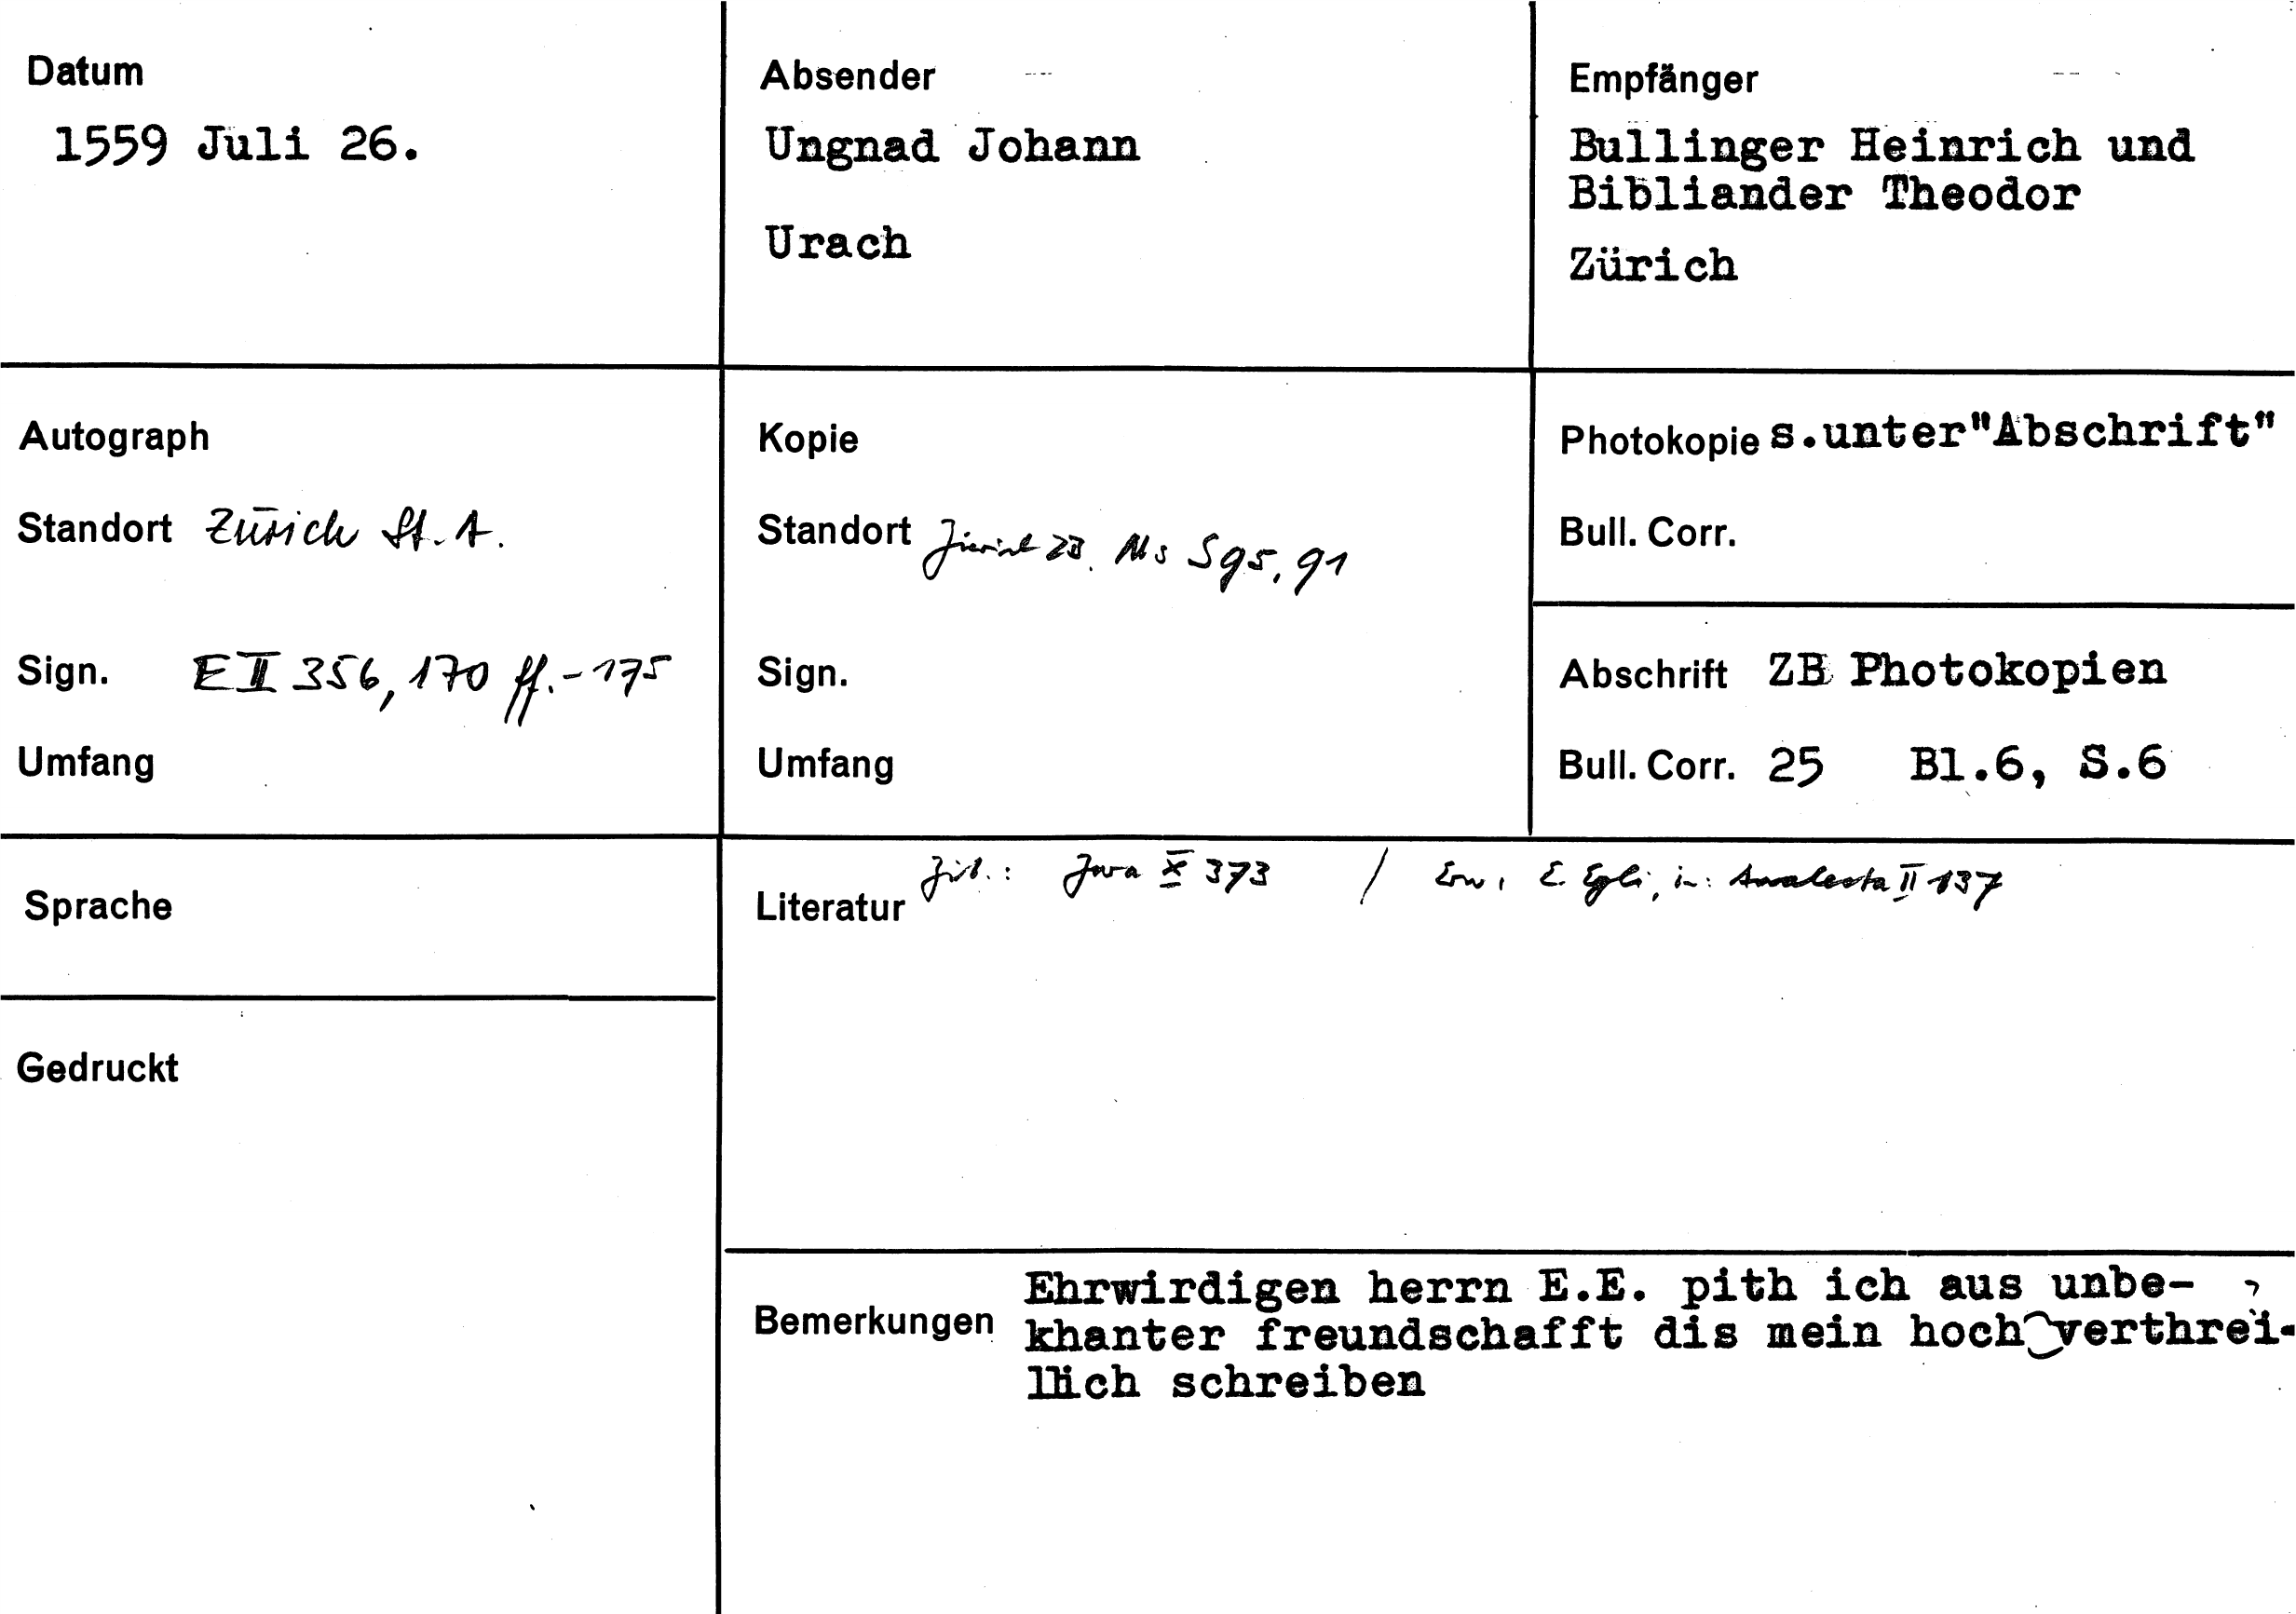 Datum
1559 Juli 26.
Absender
Ungnad Johann
Urach
Empfänger
Bullinger Heinrich und
Bibliander Theodor
Zürich
Autograph
Standort Zürich St. A.
Sign. E II 356, 170 ff.-175
Umfang
Kopie
Standort Zürich ZB. Ms S 95, 91
Sign.
Umfang
Photokopie s.unter"Abschrift"
Bull. Corr.
Abschrift ZB Photokopien
Bull. Corr. 25 Bl.6, S.6
Sprache
Gedruckt
Literatur Zit.: Jura X 373 / Erw. E. Egli, in: Analecta II 137
Bemerkungen Ehrwirdigen herrn E.E. pith ich aus unbe-
khanter freundschafft dis mein hoch verthrei-
llich schreiben